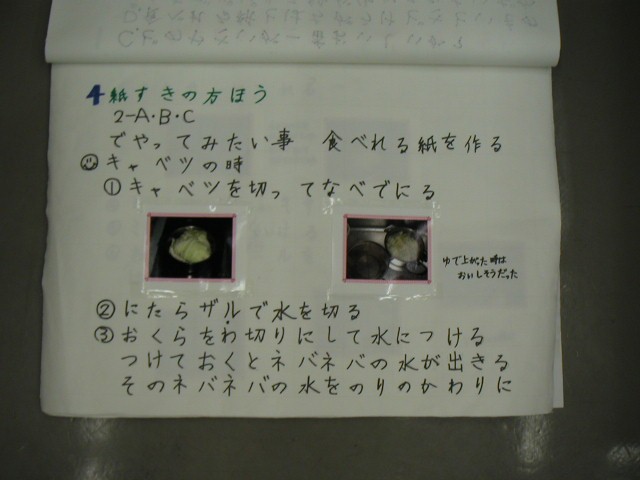 4 紙すきの方ほう
2-A・B・C
でやってみたい事 食べれる紙を作る
キャベツの時
① キャベツを切ってなべでにる
ゆで上がった時は
おいしそうだった
② にたらザルで水を切る
③ おくらをわ切りにして水につける
つけておくとネバネバの水が出きる
そのネバネバの水をのりのかわりに